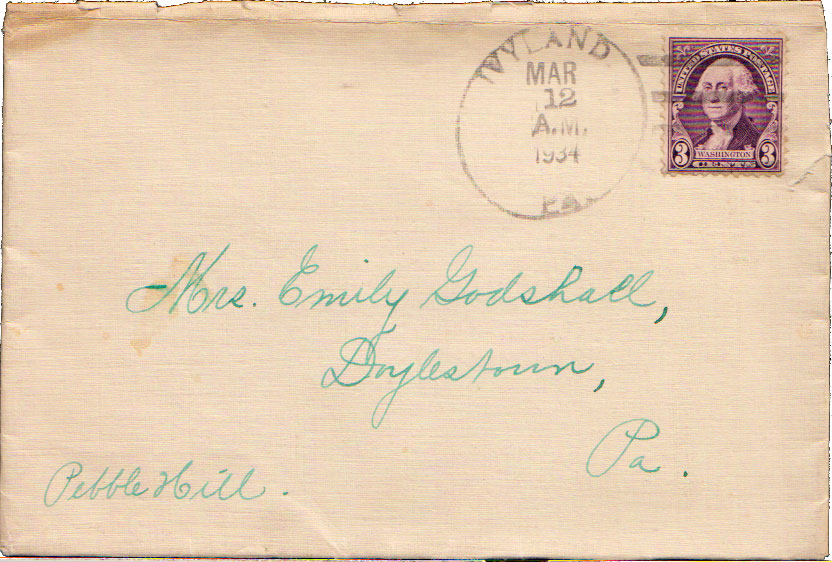 IVYLAND
MAR
12
A.M.
1934
PA.
UNITED STATES POSTAGE
3 WASHINGTON 3
Mrs. Emily Godshall,
Doylestown,
Pa.
Pebble Hill.